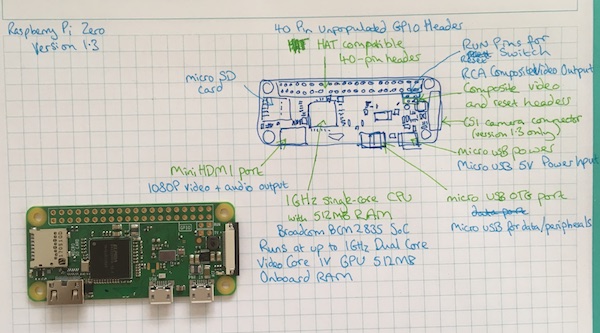 Raspberry Pi Zero
Version 1.3
40 Pin Unpopulated GPIO Header
HAT compatible
40-pin header
micro SD
card
RUN Pins for
Switch
RCA Composite Video Output
Composite video
and reset headers
CSI camera connector
(version 1.3 only)
micro usb power
Micro USB 5V Power Input
Mini HDMI port
1080P video + audio output
1GHz single-core CPU
with 512MB RAM
Broadcom BCM2835 SoC
Runs at up to 1GHz Dual Core
VideoCore IV GPU 512MB
Onboard RAM
micro USB OTG port
data port
Micro USB for data/peripherals